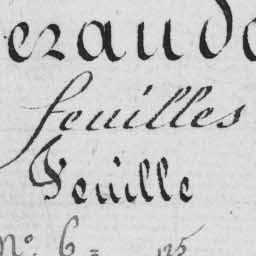 eraud
feuilles
Feuille
No. 6 = 125